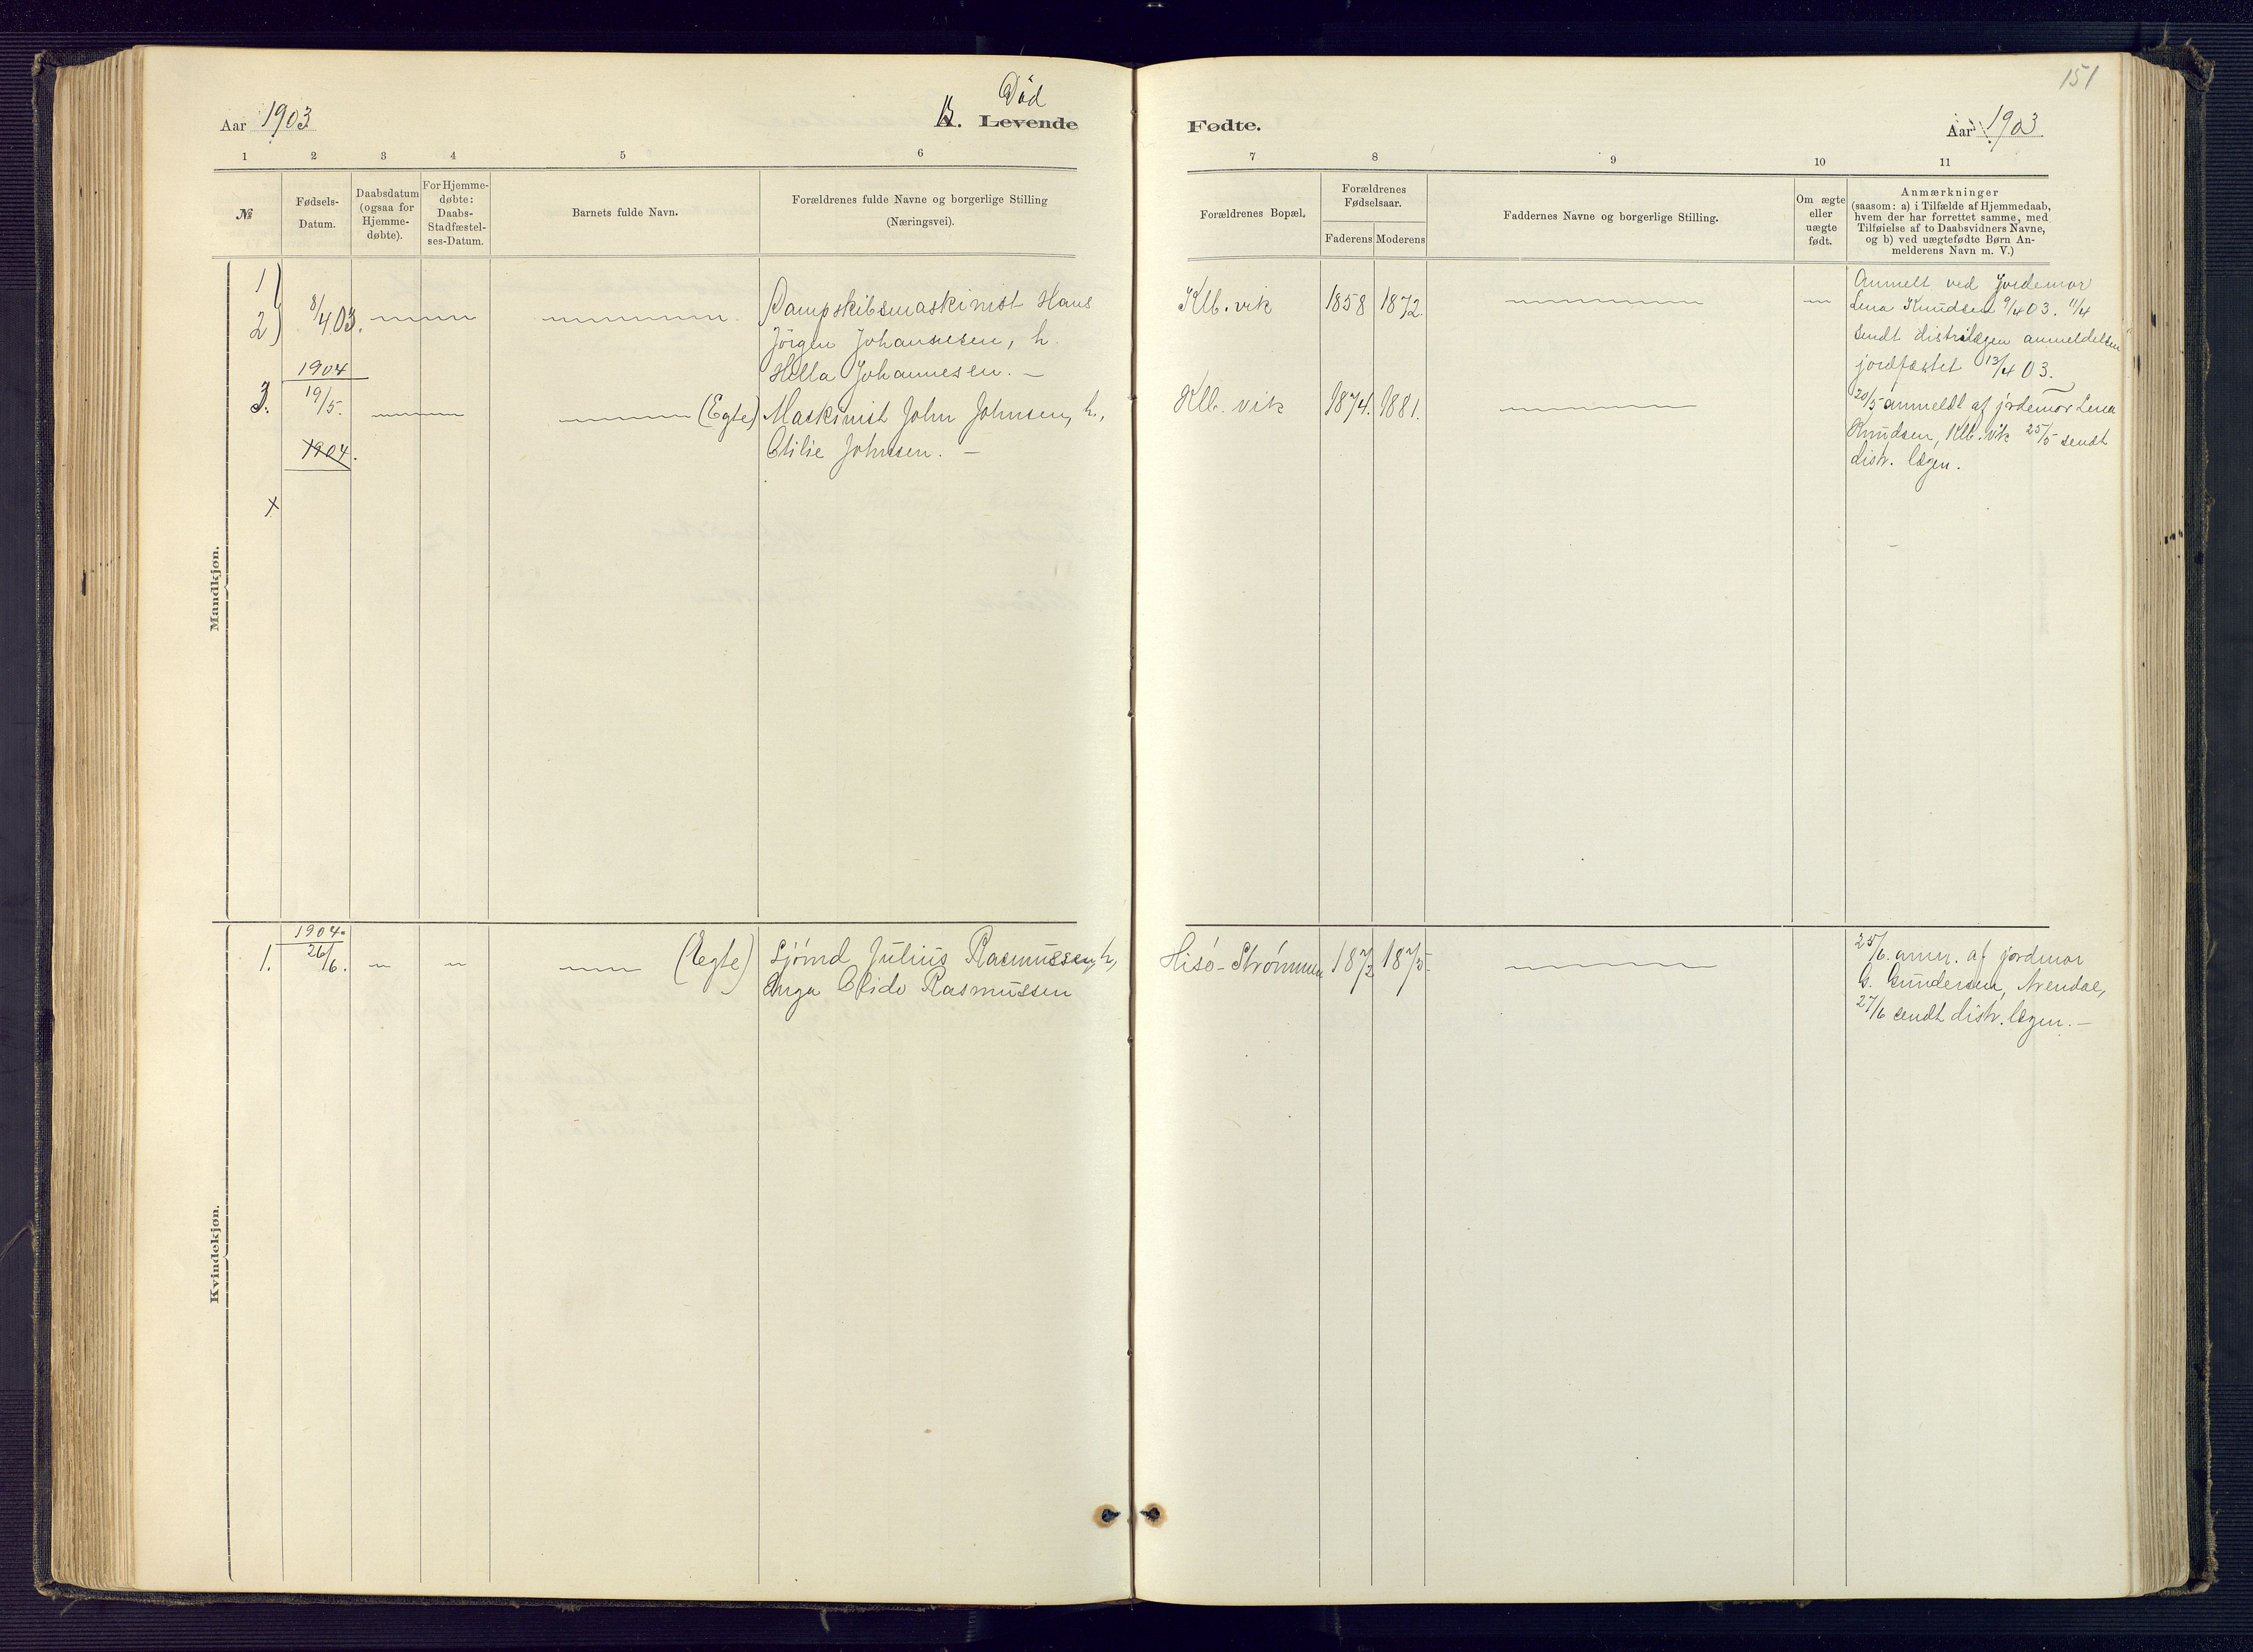 151
Aar 1903
Død
B. Levende
Fødte.
Aar 1903
1 2 3 4 5 6
7 8 9 10 11
№
Fødsels-
Datum.
Daabsdatum
(ogsaa for
Hjemme-
døbte).
For Hjemme-
døbte:
Daabs-
Stadfæstel-
ses-Datum.
Barnets fulde Navn.
Forældrenes fulde Navne og borgerlige Stilling
(Næringsvei).
Forældrenes Bopæl.
Forældrenes
Fødselsaar.
Faderens Moderens
Faddernes Navne og borgerlige Stilling.
Om ægte
eller
uægte
født.
Anmærkninger
(saasom: a) i Tilfælde af Hjemmedaab,
hvem der har forrettet samme, med
Tilføielse af to Daabsvidners Navne,
og b) ved uægtefødte Børn An-
melderens Navn m. V.)
Mandkjøn.
1)
2)
8/4 03.
Dampskibsmaskinist Hans
Jörgen Johannesen, h.
Hilla Johannesen. —
Klb. vik
1858
1872.
Anmelt ved Jordemor
Lena Knudsen 9/4 03. 11/4
sendt distrilægen anmeldelsen
jordfæstet 13/4 03.
1904
3.
19/5.
(Egte)
Maskinist John Johnsen, h.,
Otilie Johnsen. —
Klb. vik
1874.
1881.
20/5 anmeldt af jordemor Lena
Knudsen, Klb. vik 25/5 sendt
distr. lægen.
1904.
x
Kvindekjøn.
1904.
1.
26/6.
(Egte)
Sjömd Julius Rasmussen, h,
Inga Rasmussen
Hisö-Strömmen
187
1875.
25/6. anm. af jordmor
G. Gundersen, Arendal,
27/6 sendt distr. lægen. —